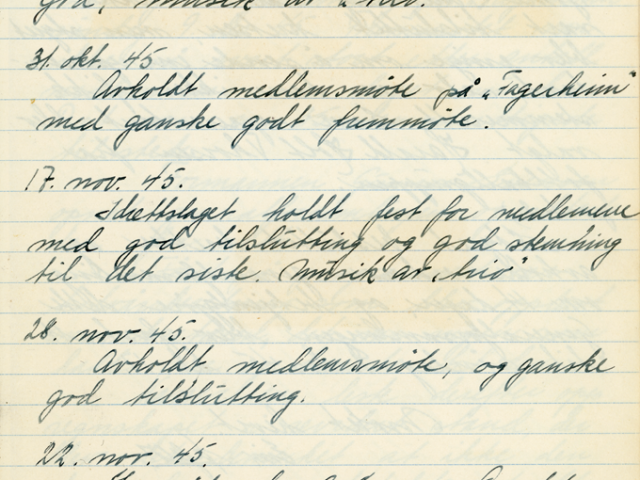 god, musik av "trio".
31. okt. 45
Avholdt medlemsmöte på "Fagerheim"
med ganske godt fremmöte.
17. nov. 45.
Idrettslaget holdt fest for medlemene
med god tilslutting og god stemning
til det siste. Musik av "trio"
28. nov. 45.
Avholdt medlemsmöte, og ganske
god tilslutting.
22. nov. 45.